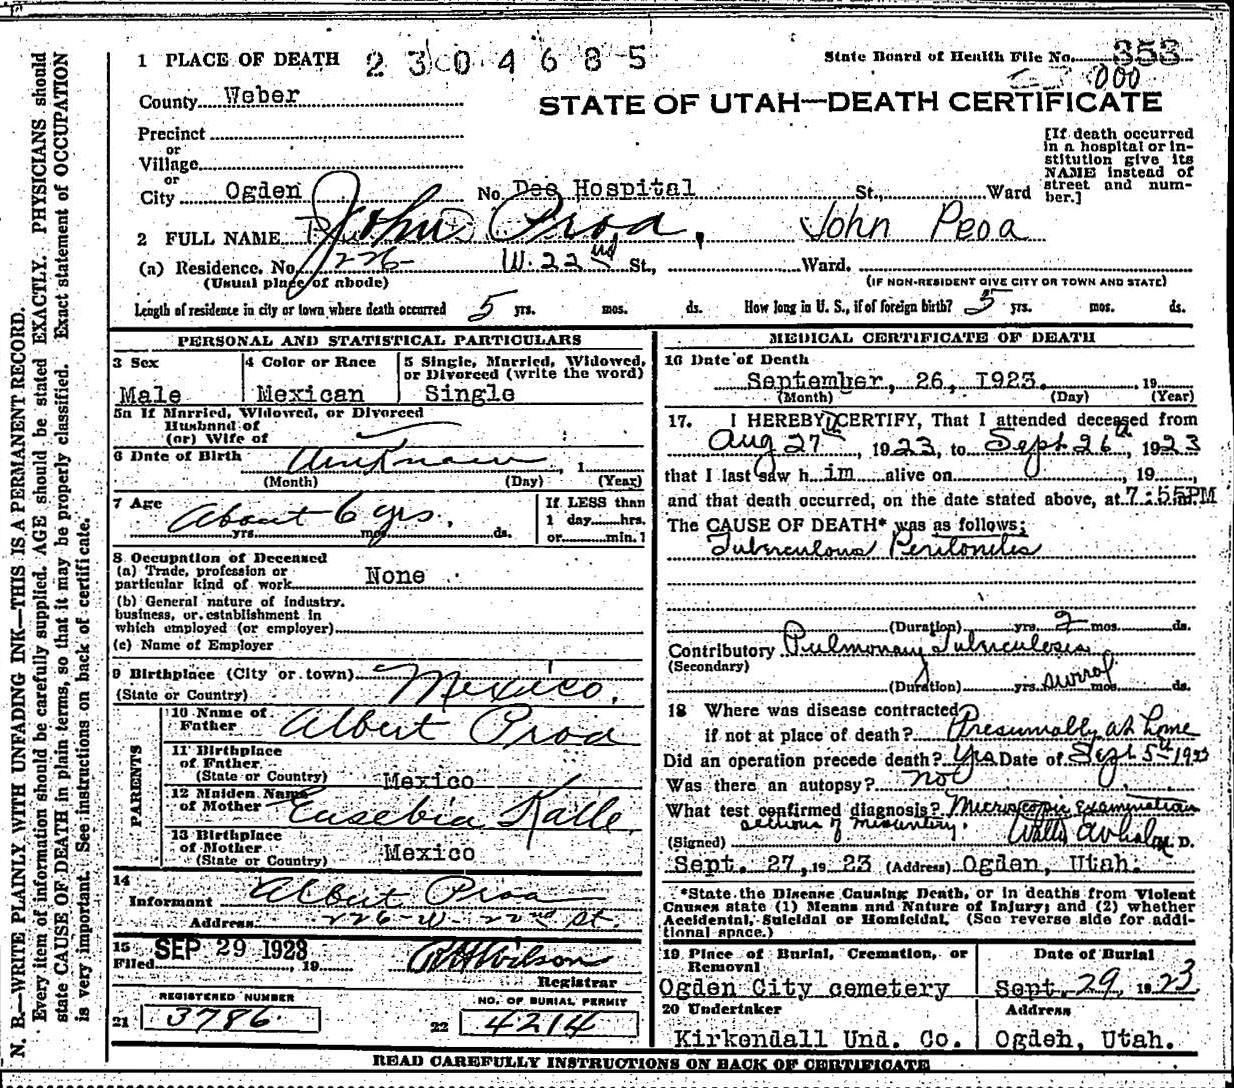 1 PLACE OF DEATH 2304685
State Board of Health File No. 353
000
County Weber
STATE OF UTAH—DEATH CERTIFICATE
Precinct
or
Village
or
City Ogden No. Dee Hospital St., Ward
[If death occurred in a hospital or in-
stitution give its
NAME instead of
street and num-
ber.]
2 FULL NAME John Proa, John Peoa
(a) Residence. No. 226 W. 22nd St., Ward.
(Usual place of abode) (IF NON-RESIDENT GIVE CITY OR TOWN AND STATE)
Length of residence in city or town where death occurred 5 yrs. mos. ds. How long in U. S., if of foreign birth? 5 yrs. mos. ds.
PERSONAL AND STATISTICAL PARTICULARS
3 Sex
Male
4 Color or Race
Mexican
5 Single, Married, Widowed,
or Divorced (write the word)
Single
5a If Married, Widowed, or Divorced
Husband of
(or) Wife of
6 Date of Birth Unknown, 1
(Month) (Day) (Year)
7 Age About 6 yrs.
yrs. mos. ds.
If LESS than
1 day hrs.
or min.
8 Occupation of Deceased
(a) Trade, profession or
particular kind of work None
(b) General nature of industry,
business, or establishment in
which employed (or employer)
(c) Name of Employer
9 Birthplace (City or town) Mexico.
(State or Country)
PARENTS
10 Name of
Father Albert Proa
11 Birthplace
of Father
(State or Country) Mexico
12 Maiden Name
of Mother Eusebia Kalle
13 Birthplace
of Mother
(State or Country) Mexico
14
Informant Albert Proa
Address 226-W-22nd St.
15 SEP 29 1923
Filed , 19
Wilson
Registrar
REGISTERED NUMBER
21 3786
NO. OF BURIAL PERMIT
22 4214
MEDICAL CERTIFICATE OF DEATH
16 Date of Death
September, 26, 1923. , 19
(Month) (Day) (Year)
17. I HEREBY CERTIFY, That I attended deceased from
Aug 27th, 1923, to Sept 26th, 1923
that I last saw him alive on , 19
and that death occurred, on the date stated above, at 7:55PM
The CAUSE OF DEATH* was as follows:
Tuberculous Peritonitis
(Duration) yrs. 2 mos. ds.
Contributory Pulmonary Tuberculosis
(Secondary)
(Duration) yrs. mos. ds.
18 Where was disease contracted
if not at place of death? Presumably at home
Did an operation precede death? Yes Date of Sept 5th 1923
Was there an autopsy? no
What test confirmed diagnosis? Microscopic Examination
(Signed) M. D.
Sept. 27, 19 23 (Address) Ogden, Utah.
*State the Disease Causing Death, or in deaths from Violent
Causes state (1) Means and Nature of Injury; and (2) whether
Accidental, Suicidal or Homicidal. (See reverse side for addi-
tional space.)
19 Place of Burial, Cremation, or
Removal
Ogden City cemetery
Date of Burial
Sept. 29, 1923
20 Undertaker
Kirkendall Und. Co.
Address
Ogden, Utah.
READ CAREFULLY INSTRUCTIONS ON BACK OF CERTIFICATE
N. B.—WRITE PLAINLY WITH UNFADING INK—THIS IS A PERMANENT RECORD.
Every item of information should be carefully supplied. AGE should be stated EXACTLY. PHYSICIANS should
state CAUSE OF DEATH in plain terms, so that it may be properly classified. Exact statement of OCCUPATION
is very important. See instructions on back of certificate.